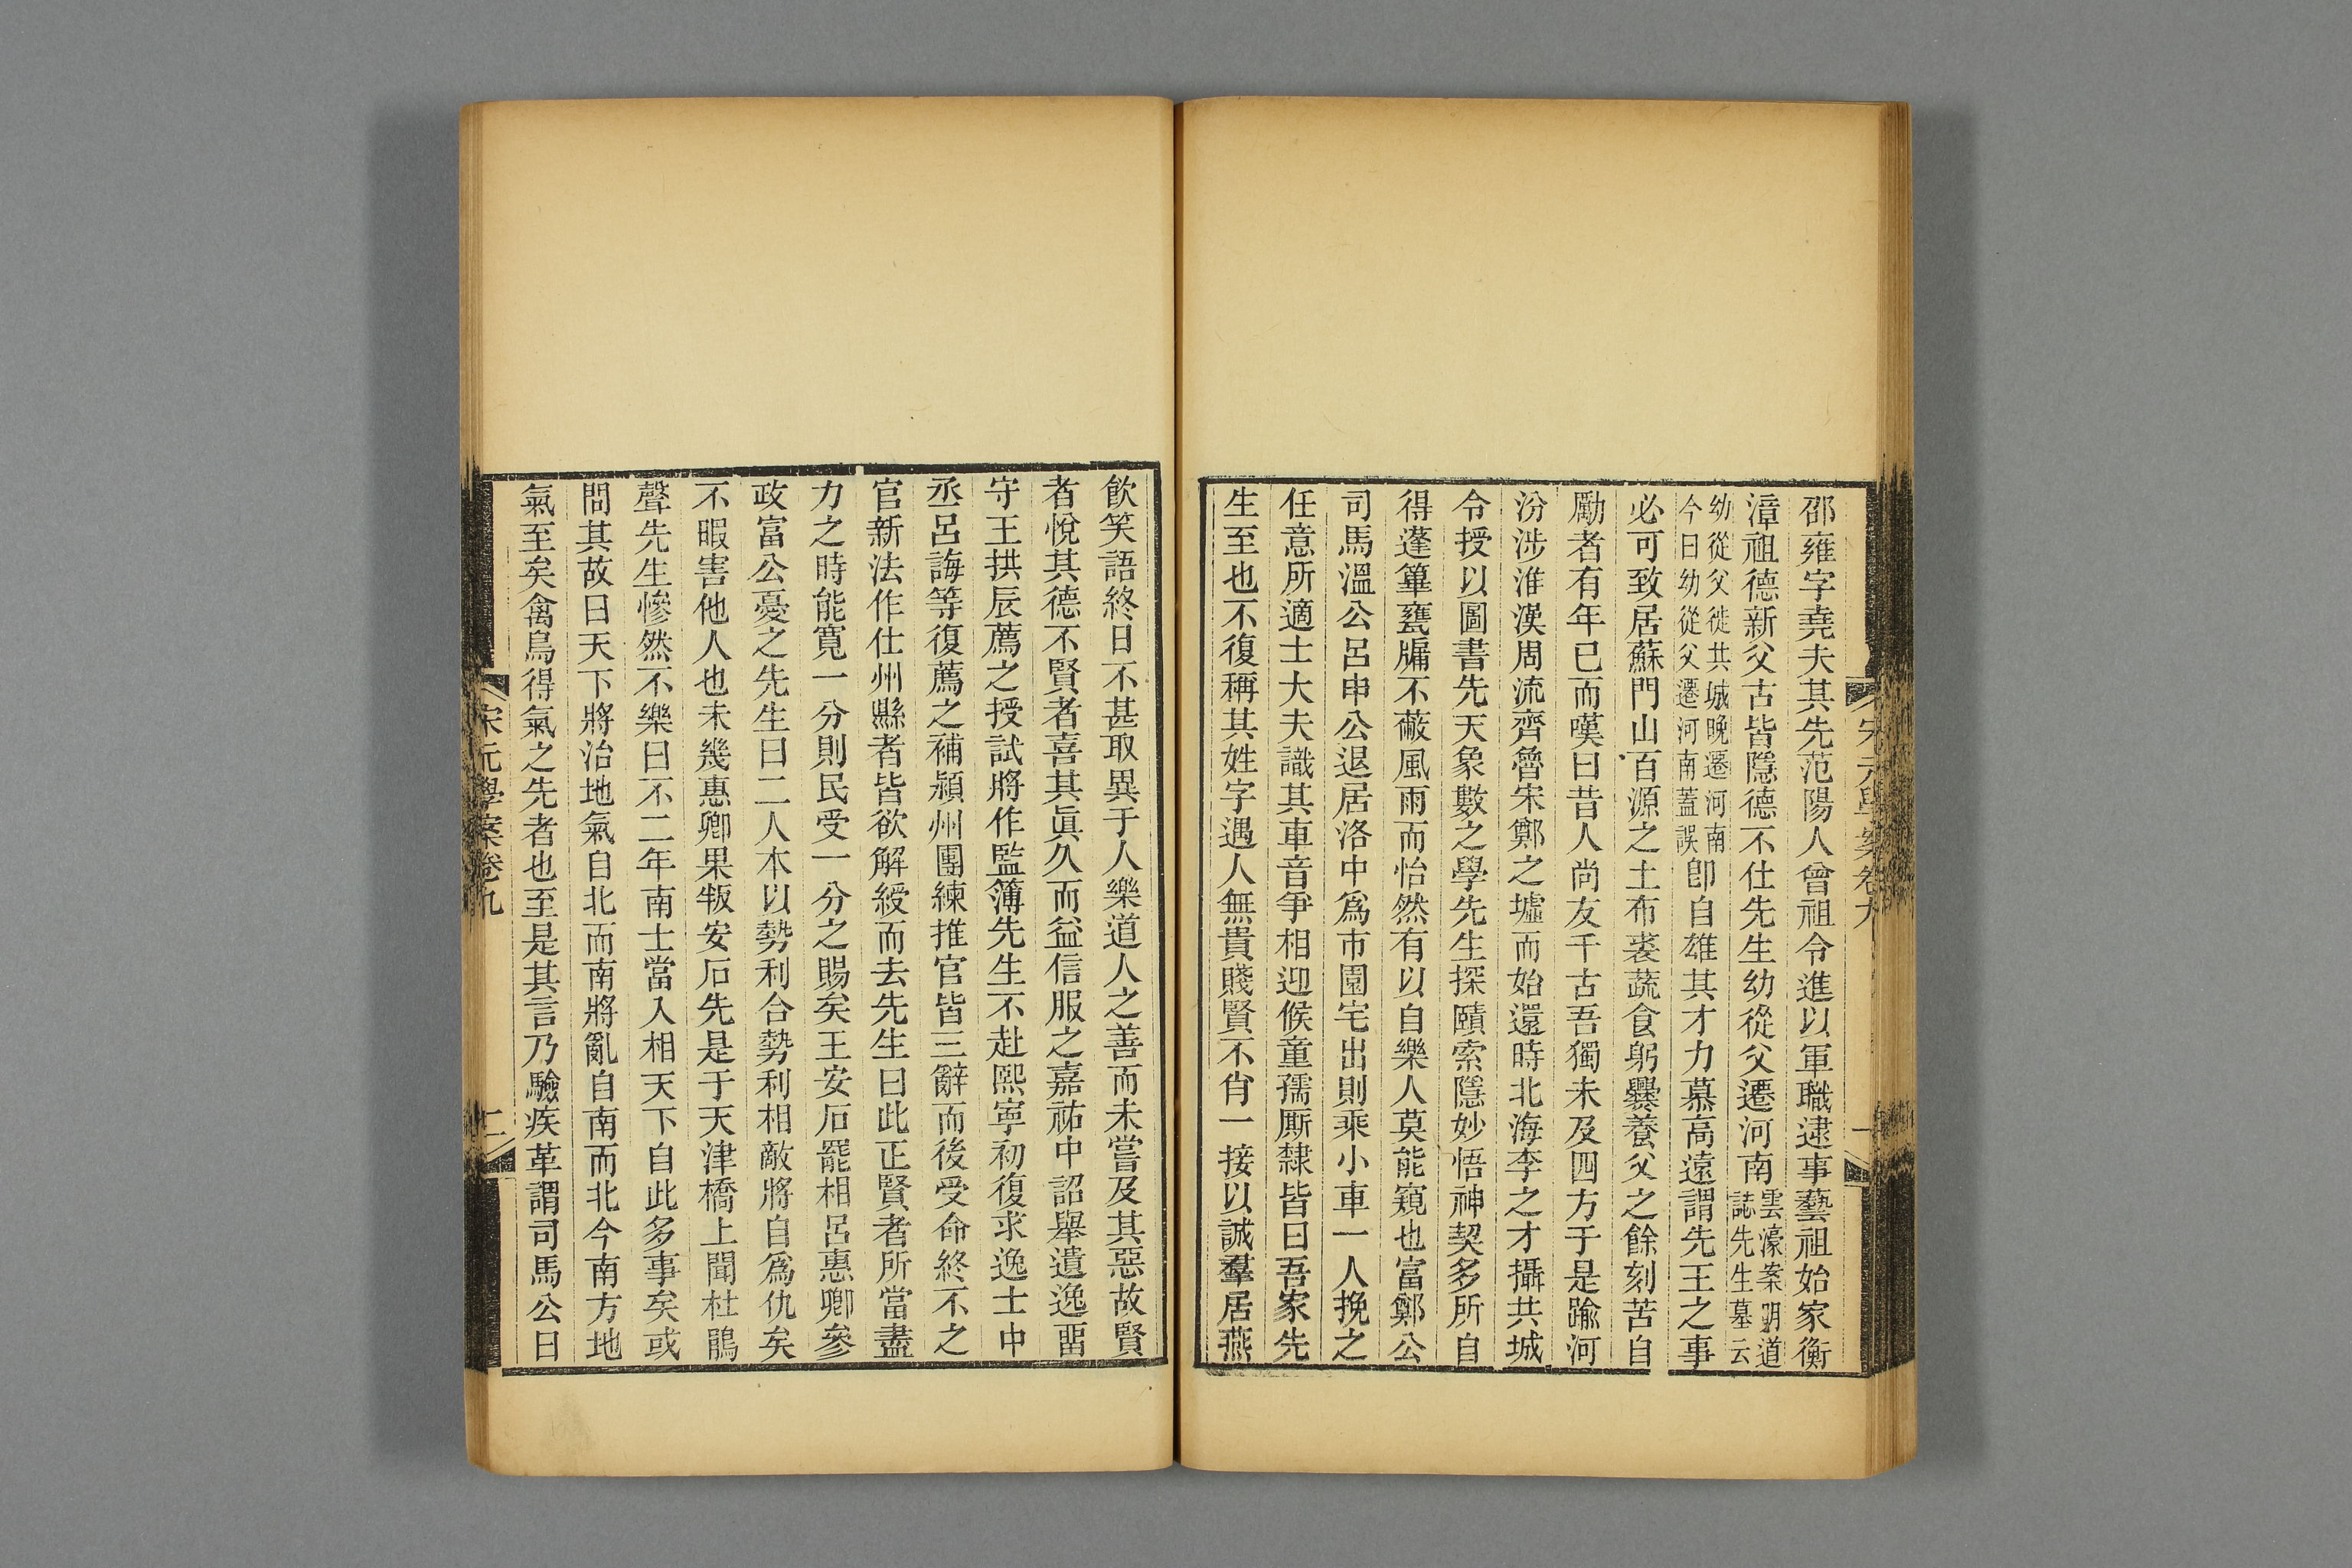 邵雍字堯夫其先范陽人曾祖令進以軍職逮事藝祖始家衡
漳祖德新父古皆隱德不仕先生幼從父遷河南雲濠案明道誌先生墓云
幼從父徙共城晚遷河南今曰幼從父遷河南蓋誤卽自雄其才力慕高遠謂先王之事
必可致居蘇門山百源之上布裘蔬食躬爨養父之餘刻苦自
勵者有年已而嘆曰昔人尚友千古吾獨未及四方于是踰河
汾涉淮漢周流齊魯宋鄭之墟而始還時北海李之才攝共城
令授以圖書先天象數之學先生探賾索隱妙悟神契多所自
得蓬篳甕牖不蔽風雨而怡然有以自樂人莫能窺也富鄭公
司馬溫公呂申公退居洛中爲市園宅出則乘小車一人挽之
任意所適士大夫識其車音爭相迎候童孺廝隸皆曰吾家先
生至也不復稱其姓字遇人無貴賤賢不肖一接以誠羣居燕
飲笑語終日不甚取異于人樂道人之善而未嘗及其惡故賢
者悅其德不賢者喜其眞久而益信服之嘉祐中詔舉遺逸畱
守王拱辰薦之授試將作監簿先生不赴熙寧初復求逸士中
丞呂誨等復薦之補潁州團練推官皆三辭而後受命終不之
官新法作仕州縣者皆欲解綬而去先生曰此正賢者所當盡
力之時能寬一分則民受一分之賜矣王安石罷相呂惠卿參
政富公憂之先生曰二人本以勢利合勢利相敵將自爲仇矣
不暇害他人也未幾惠卿果叛安石先是于天津橋上聞杜鵑
聲先生慘然不樂曰不二年南士當入相天下自此多事矣或
問其故曰天下將治地氣自北而南將亂自南而北今南方地
氣至矣禽鳥得氣之先者也至是其言乃驗疾革謂司馬公曰
宋元學案卷九
二